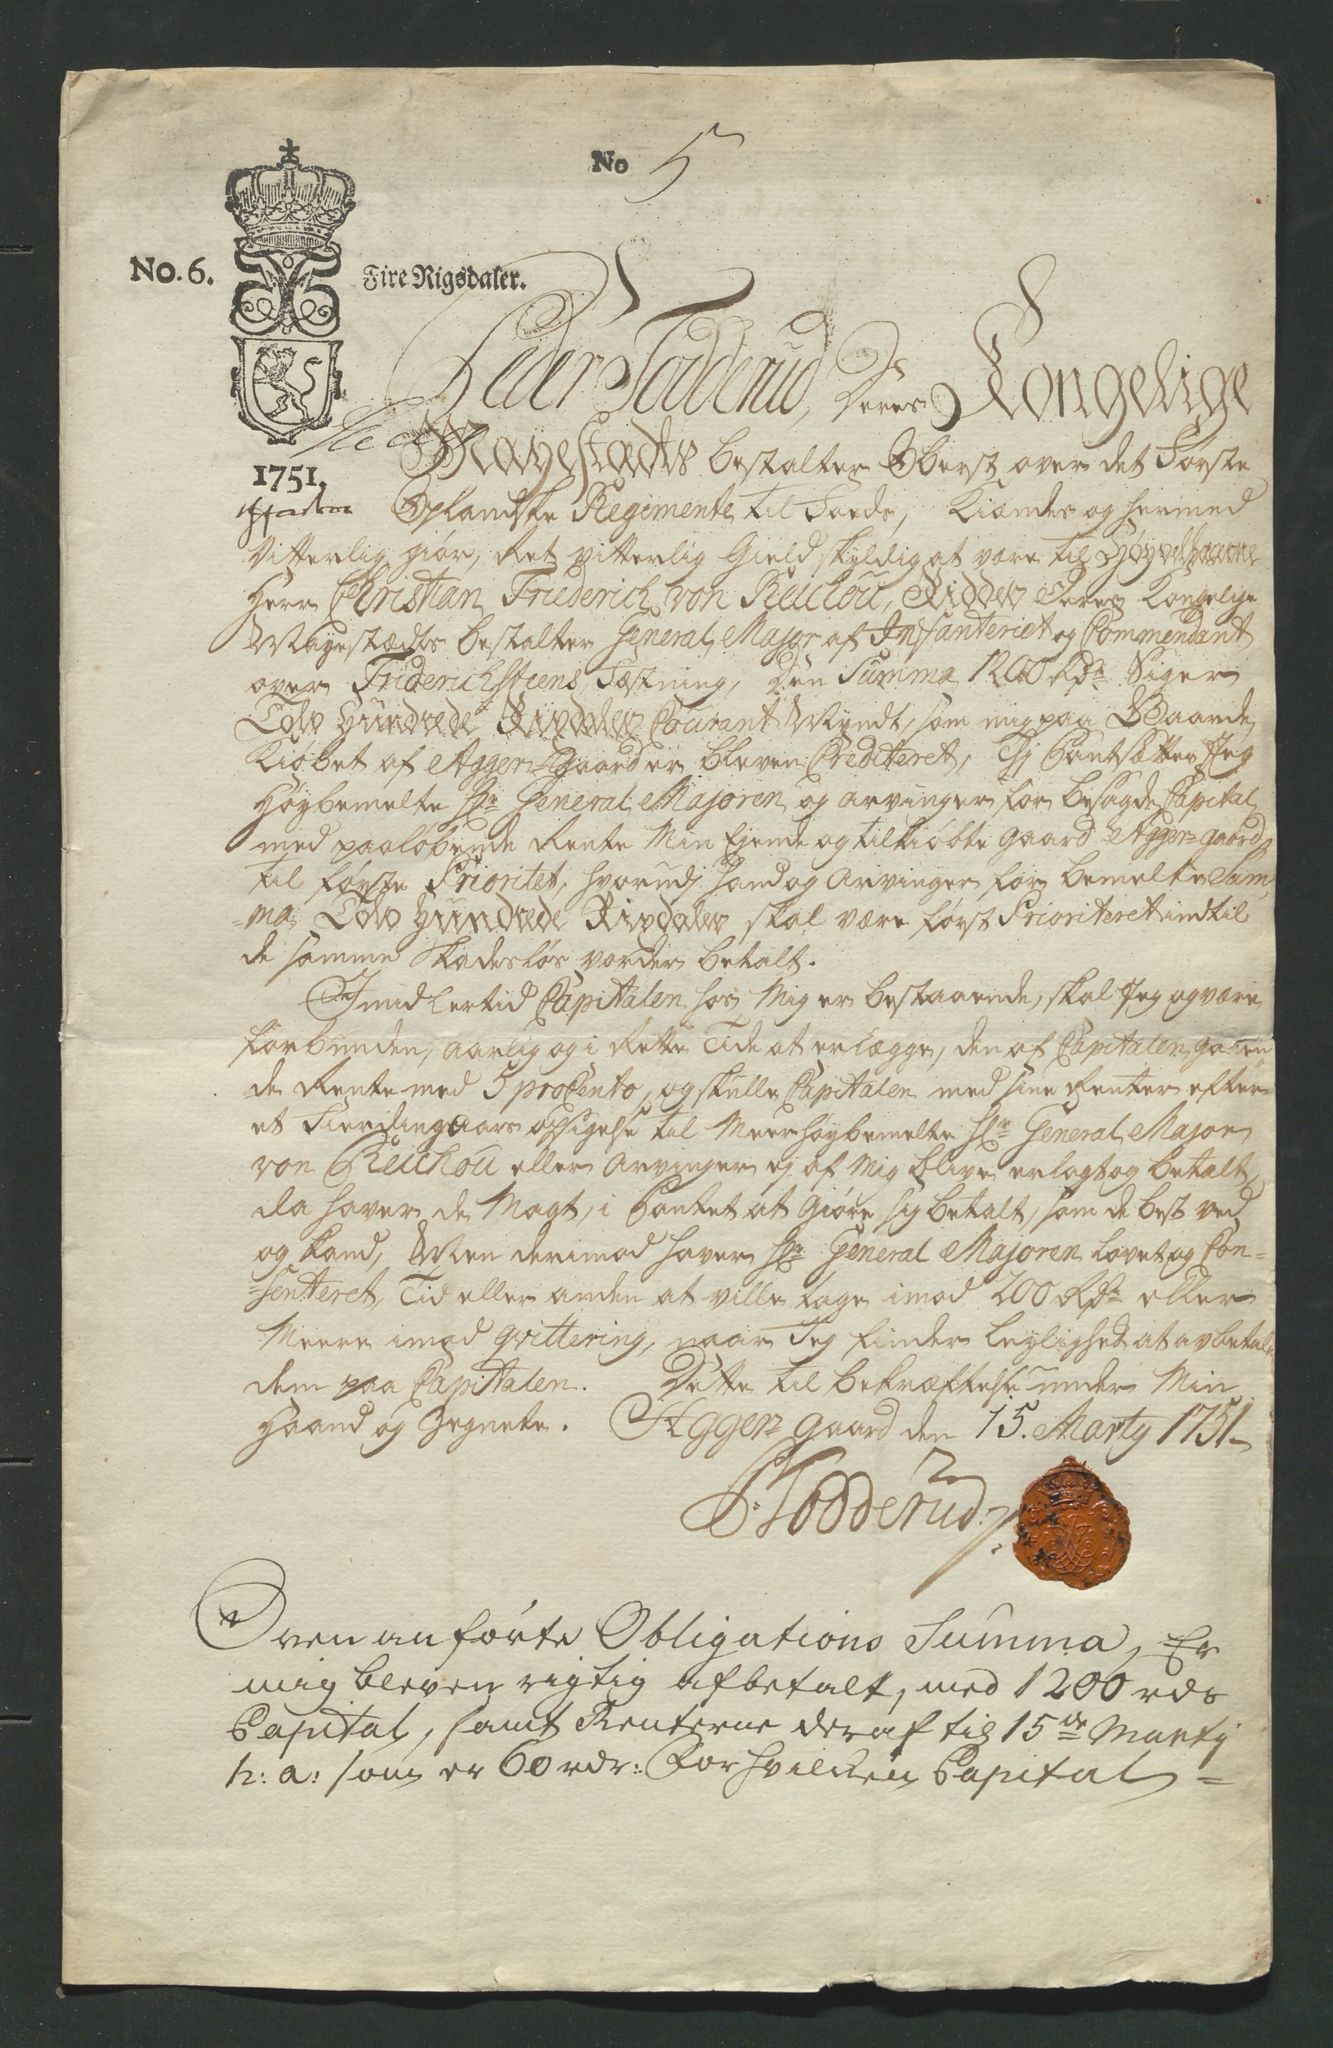 No 5
No. 6.
Fire Rigsdaler.
1751.
Peder Todderud, Deres Kongelige
Mayestædts bestalter Oberst over det Første
Oplandske Regimente til Foeds, Kiendes og hermed
Vitterlig giør, Ret vitterlig Gield skyldig at være til Høyædelbaarne
Herr Christian Friederich von Reichou, Ridder Deres Kongelige
Mayestædts bestalter General Major af Infanteriet og Commendant
over Friderichstens Fæstning, Den Summa 1200 Rdr Siger
Tolv Hundrede Rixdaler Courant Myndt, som mig paa Gaarde
Kiøbet af Aggers Gaard er bleven Crediteret, Thj Pantsætter Jeg
Høybemelte Hr General Majoren og arvinger for besagde Capital
med paaløbende Rente Min Ejende og tilkiøbte gaard Aggers-gaard
til første Prioritet, hvorudj hand og Arvinger for bemelte Sum-
-ma Tolv Hundrede Rixdaler skal være først Prioriteret indtil
de samme skadesløs vorder betalt.
Imidlertid Capitalen hos Mig er bestaaende, skal Jeg og være
forbunden, aarlig og i Rette Tide at erlægge, den af Capitalen gaaen-
de Rente med 5 proCento, og skulle Capitalen med sine Renter efter
et Fierdingaars opsigelse til Meerhøybemelte Hr General Major
von Reichou eller Arvinger ej af Mig blive erlagt og betalt,
da haver de Magt, i Pantet at Giøre sig betalt, som de best ved
og kand, Men derimod haver Hr General Majoren lovet og Con-
-senteret, Tid eller anden at ville tage imod 200 Rdr eller
Meere imod qvittering, naar Jeg finder leylighed at avbetale
dem paa Capitalen. Dette til bekræftelse under Min
Haand og Zegnete. Aggers gaard den 15. Martij 1751
P. Todderud
Ovenanførte Obligations Summa, Er
mig bleven rigtig afbetalt, med 1200 rdr
Capital, samt Renterne deraf til 15de Martij
h: a: som er 60 rdr: For hvilken Capital =